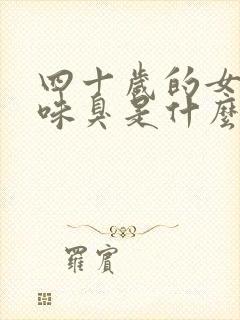 四十歲的女
味臭是什麼
羅賓